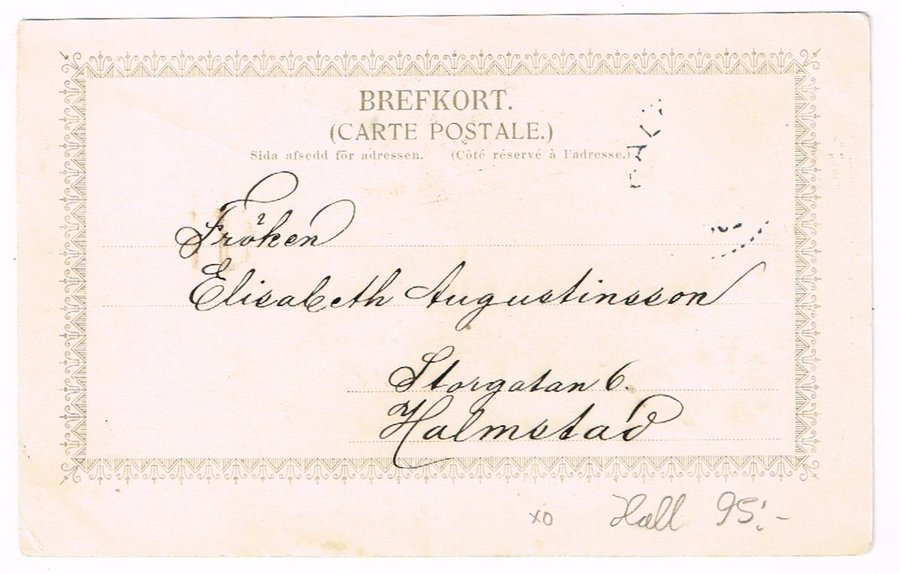 BREFKORT.
(CARTE POSTALE.)
Sida afsedd för adressen. (Côté réservé à l'adresse.)
Fröken
Elisabeth Augustinsson
Storgatan 6.
Halmstad
xo Hall 95:-